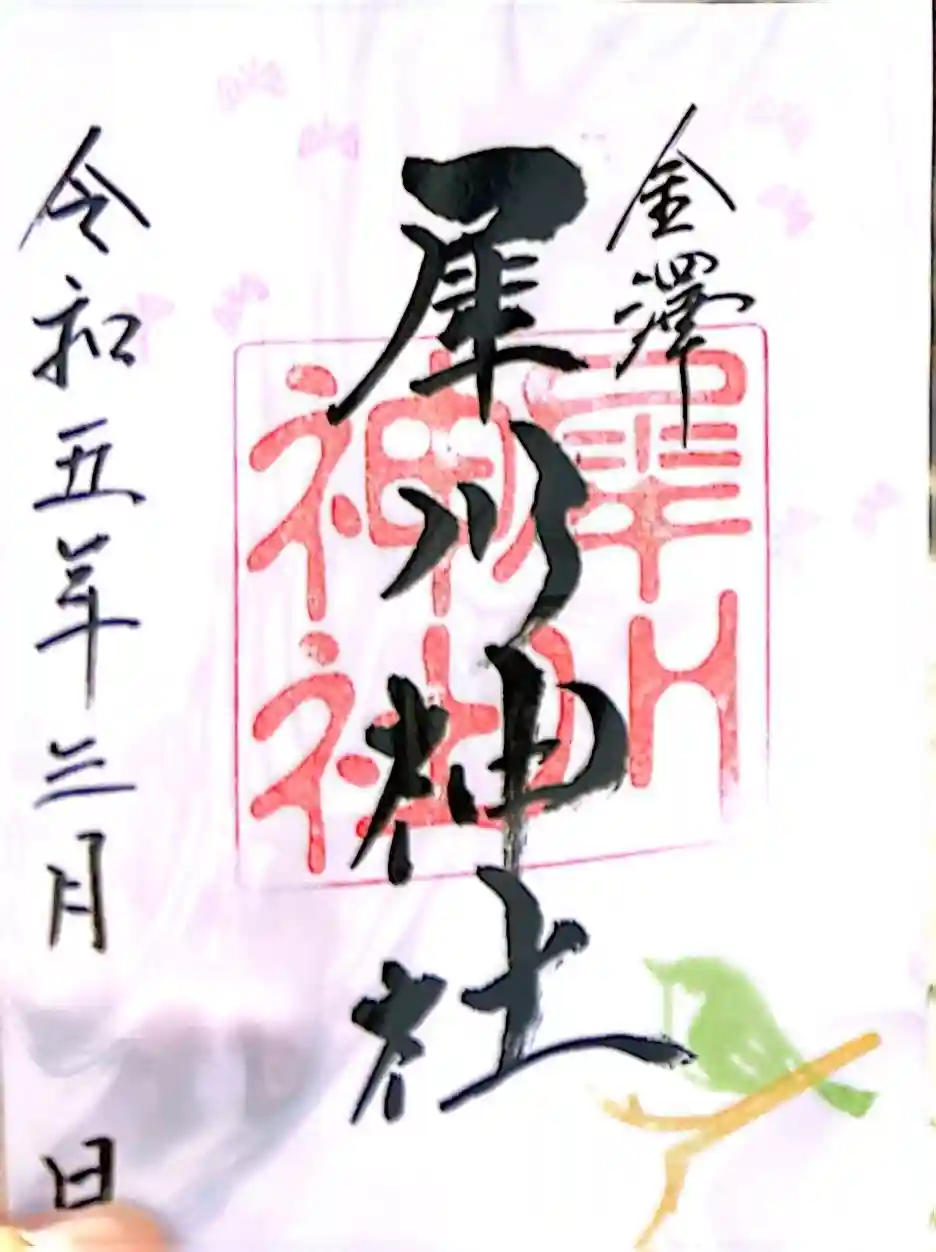 金澤
犀川神社
犀川神社
令和五年三月 日